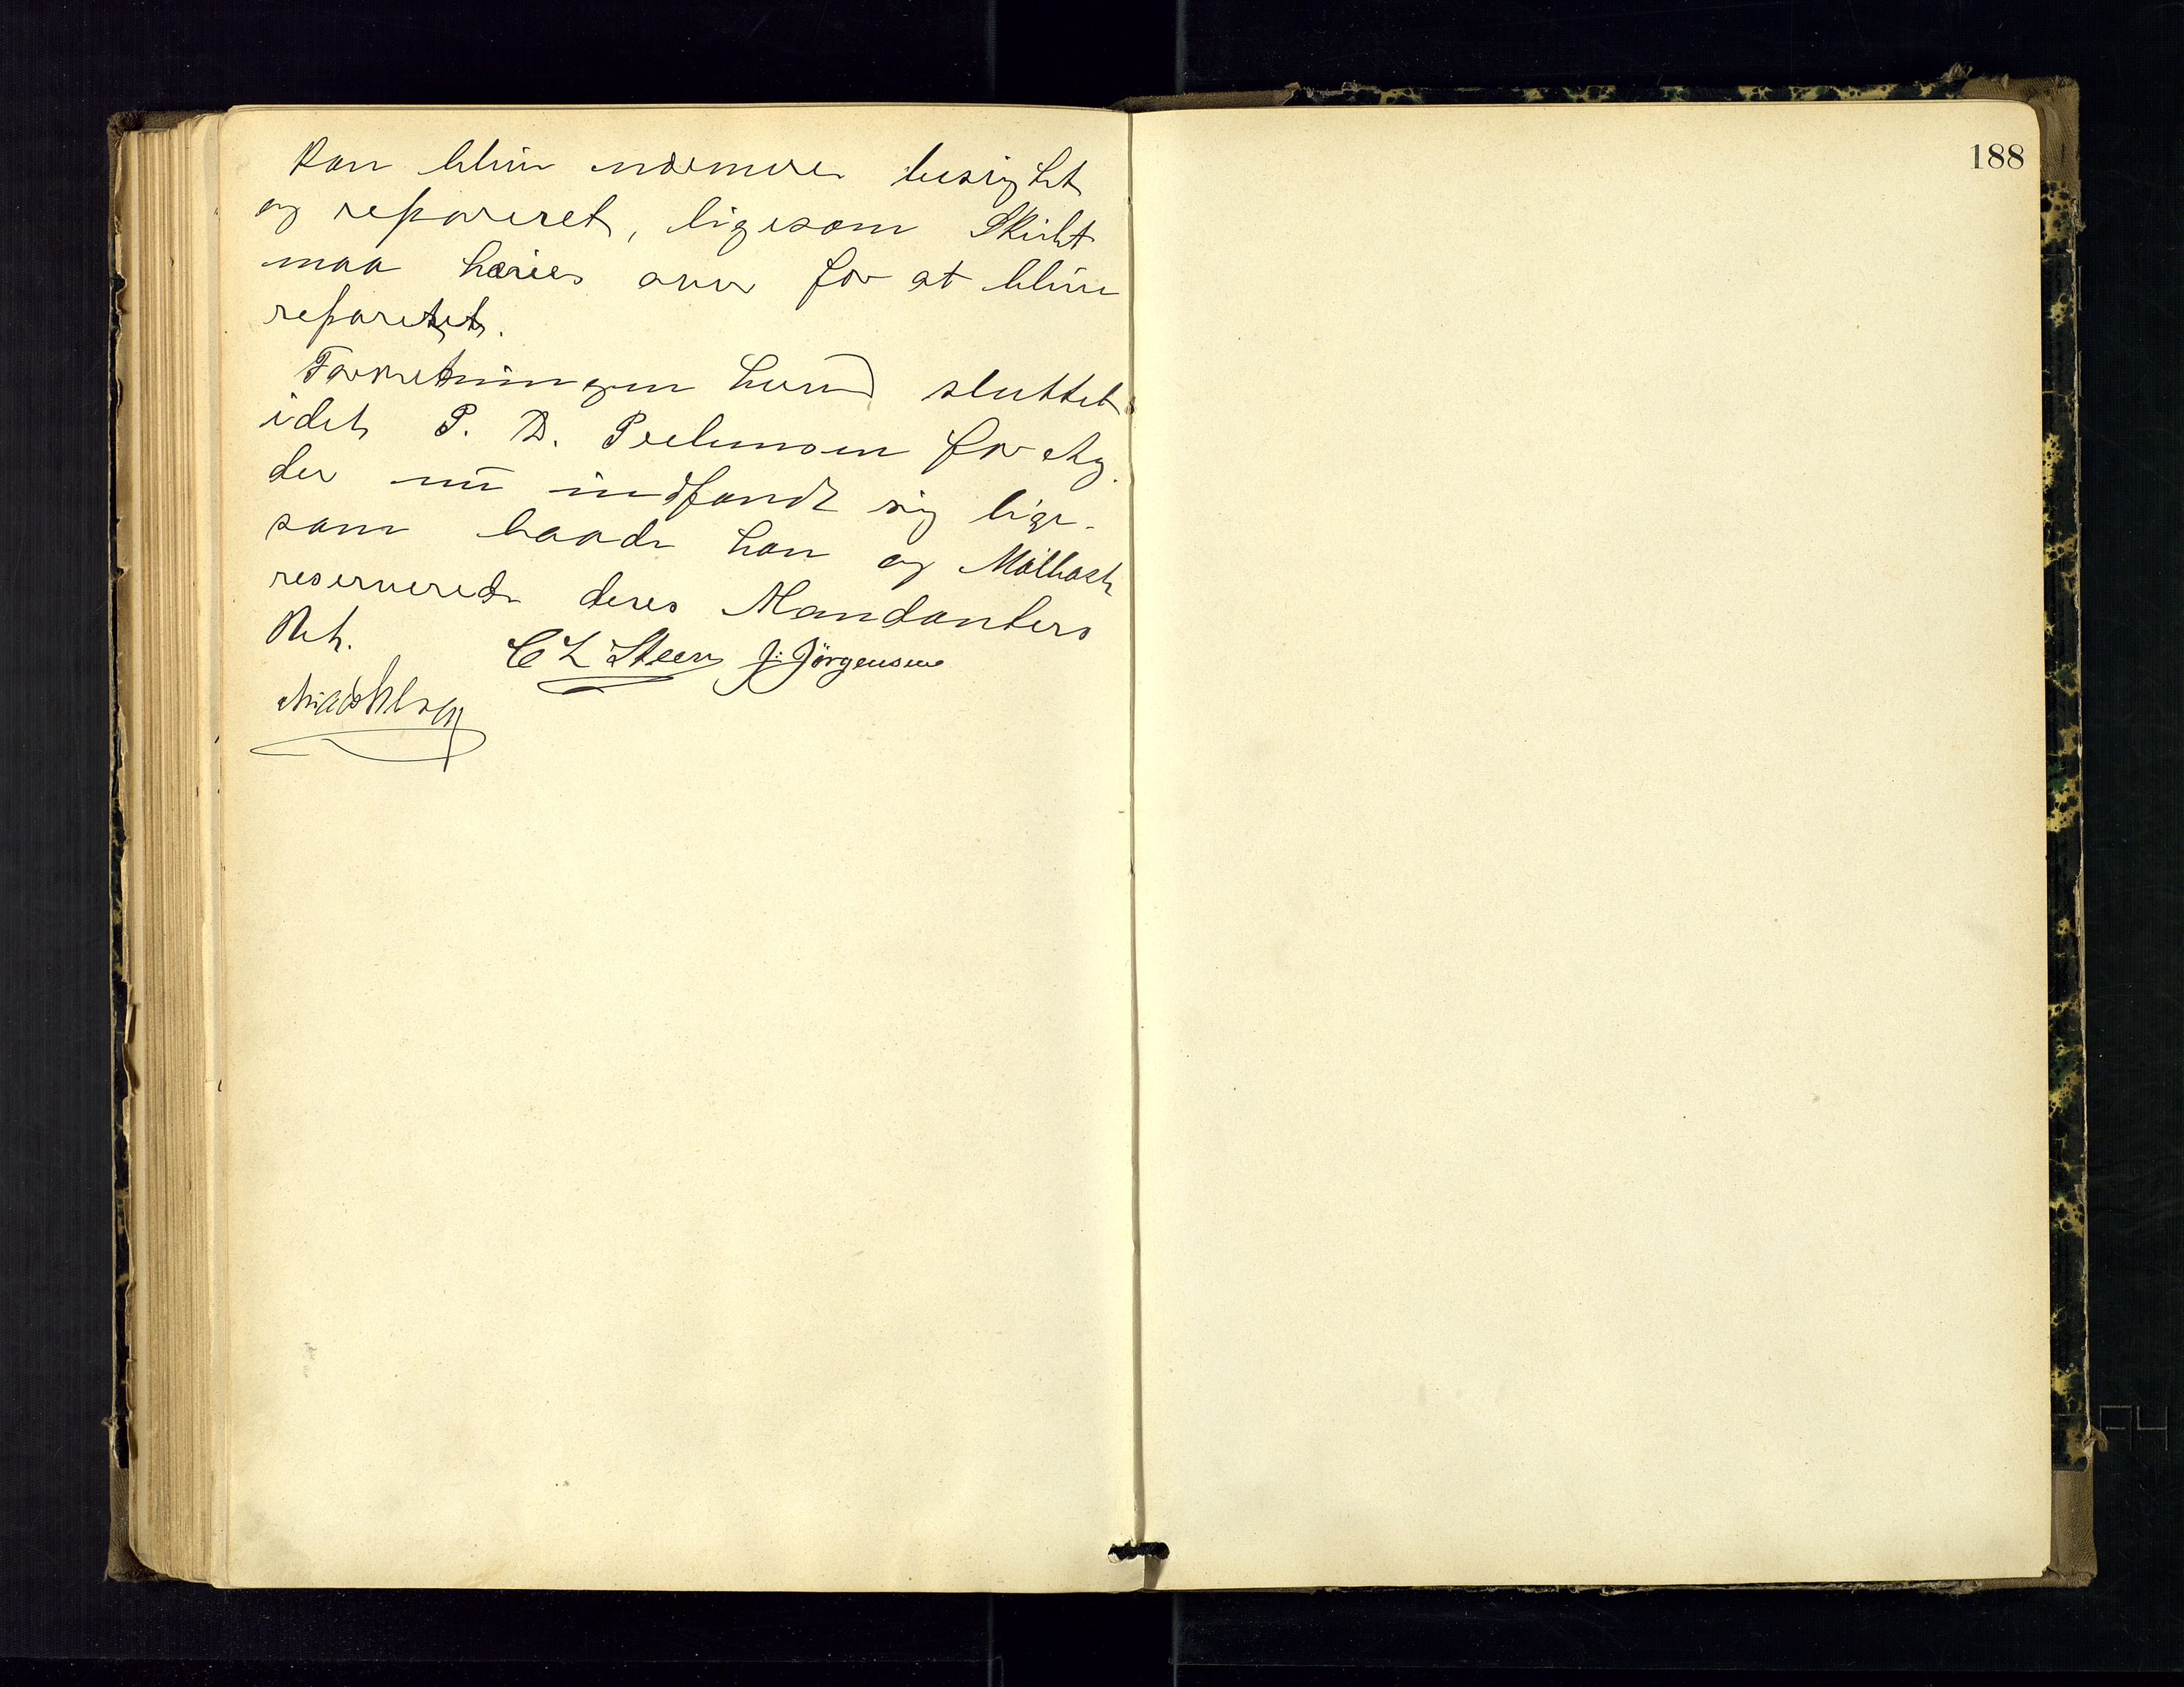 kan blive nærmere besigtet
og repareret, ligesom Skibet
maa hæves over for at blive
reparetet.
Forretningen hermed sluttet
idet P. D. for Ag.
der nu indfandt sig lige-
som baade han og Mölbach
reserverede deres Mandanters
Ret.
C L Steen J. Jörgensen
188